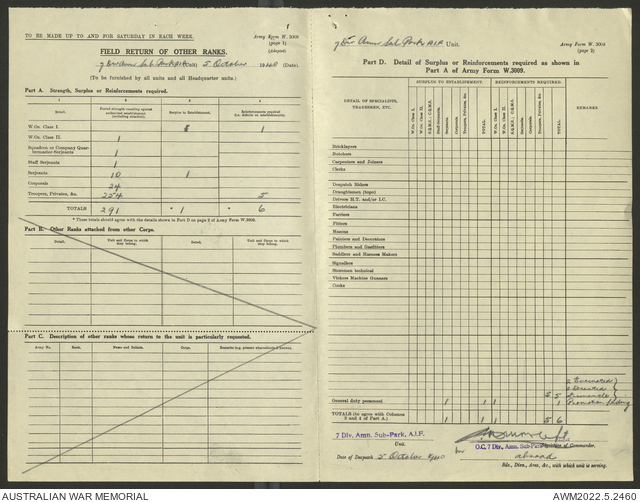 TO BE MADE UP TO AND FOR SATURDAY IN EACH WEEK.
1
Army Form W. 3009
(page 1)
(Adapted)
FIELD RETURN OF OTHER RANKS.
7 Div Amn Sub Park AIF (Unit) 5 October 1940 (Date)
(To be furnished by all units and all Headquarter units.)
Part A. Strength, Surplus or Reinforcements required.
1 2 3 4
Detail. Posted strength counting against authorized establishment (excluding attached). Surplus to Establishment. Reinforcements required (i.e. deficits on establishment).
W.Os. Class I. 1
W.Os. Class II. 1
Squadron or Company Quarter-master-Serjeants 1
Staff Serjeants 1
Serjeants 10 1
Corporals 24
Troopers, Privates, &c. 254 5
TOTALS 291 * 1 * 6
* These totals should agree with the details shown in Part D on page 2 of Army Form W.3009.
Part B. Other Ranks attached from other Corps.
Detail. Unit and Corps to which they belong. Detail. Unit and Corps to which they belong.
Part C. Description of other ranks whose return to the unit is particularly requested.
Army No. Rank. Name and Initials. Corps. Remarks
7 Div Amn Sub Park AIF Unit.
Army Form W. 3009
(page 2)
Part D. Detail of Surplus or Reinforcements required as shown in
Part A of Army Form W.3009.
DETAIL OF SPECIALISTS, TRADESMEN, ETC.
SURPLUS TO ESTABLISHMENT. REINFORCEMENTS REQUIRED.
W.Os. Class I. W.Os. Class II. S.Q.M.S.; C.Q.M.S. Staff Serjeants. Serjeants. Corporals. Troopers, Privates, &c. TOTAL. W.Os. Class I. W.Os. Class II. S.Q.M.S.; C.Q.M.S. Staff Serjeants. Serjeants. Corporals. Troopers, Privates, &c. TOTAL.
REMARKS
Bricklayers
Butchers
Carpenters and Joiners
Clerks
Despatch Riders
Draughtsmen (topo)
Drivers H.T. and/or I.C.
Electricians
Farriers
Fitters
Masons
Painters and Decorators
Plumbers and Gasfitters
Saddlers and Harness Makers
Signallers
Storemen technical
Vickers Machine Gunners
Cooks
2 Evacuated
2 Deserted
5 5
General duty personnel 1 1 1 1 Promotion Pending
TOTALS (to agree with Columns 3 and 4 of Part A.) 1 1 1 5 6
7 Div. Amn. Sub-Park, A.I.F.
Unit.
for O.C. 7 Div. Amn. Sub-Park
Signature of Commander.
Date of Despatch 5 October 1940
abroad
Bde., Divn., Area, &c., with which unit is serving.
AUSTRALIAN WAR MEMORIAL
AWM2022.5.2460